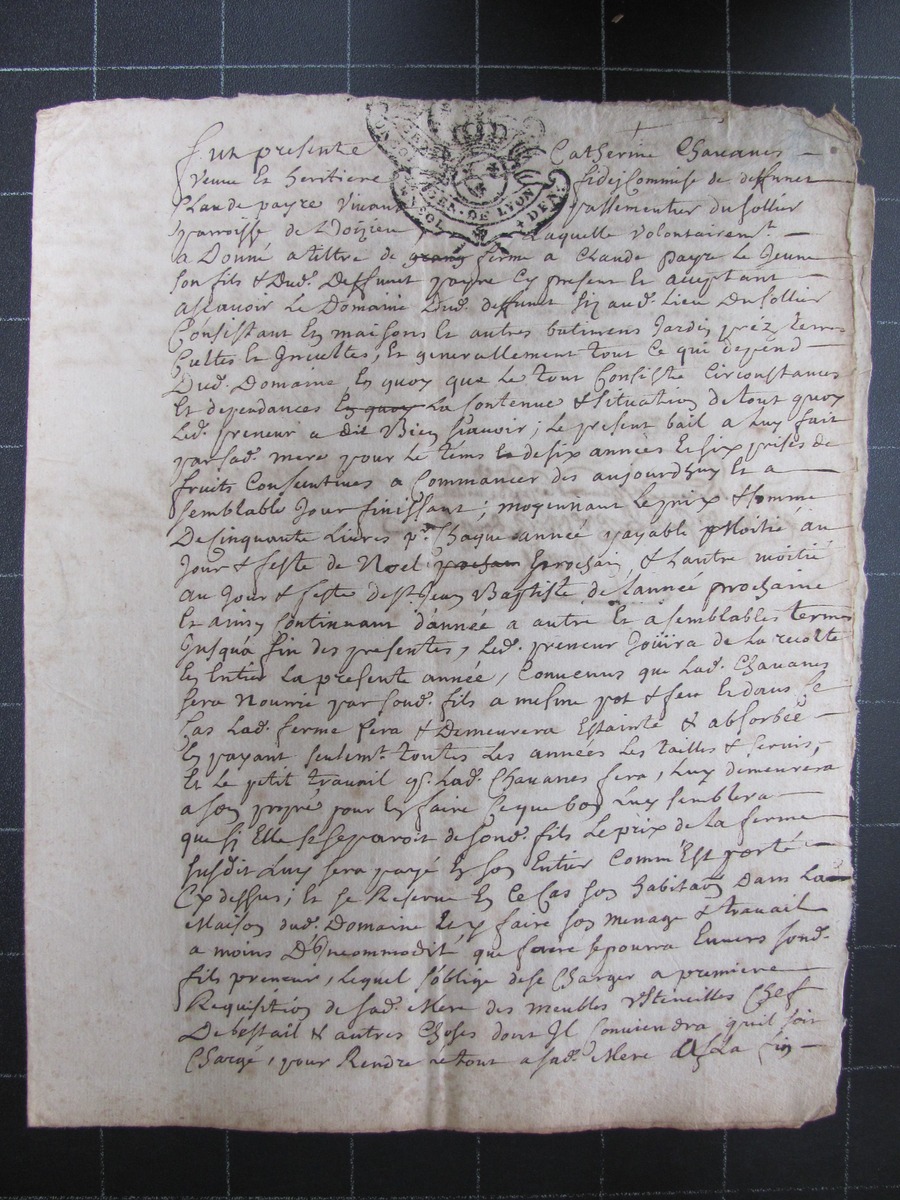 Fut presente Catherine Chavanes
Veuve Et heritiere fideicommise de deffunct
Claude payre vivant passementier du sollier
parroisse de Doizieu Laquelle volontairem.t
a Donné a tiltre de grang ferme a Claude payre le Jeune
son fils & Dud. Deffunct payre Cy present Et acceptant
ascavoir Le Domaine Dud. deffunct sis aud. Lieu Du sollier
Consistant En maisons Et autres batimens Jardin préz terres
Cultes Et Incultes, Et generallement tout ce qui depend
Dud. Domaine En quoy que le tout Consiste Circonstances
Et dependances En quoy La contenue & situation de tout quoy
Led. preneur a dit Bien scavoir; Le present bail a Luy fait
par sad. mere pour le tems de six années Et six prises de
fruits Consecutives a Commancer des aujourdhuy Et a
semblable Jour finissant; moyennant Le prix & somme
De Cinquante Livres p.r Chaque année payable Moitié au
Jour & feste de Noel prochain prochain, & Lautre moitié
au Jour & feste de st Jean Baptiste de Lannée prochaine
Et ainsy Continuant dannée a autre Et a semblables termes
Jusqua fin des presentes, Led. preneur Joüira de La recolte
En Entier La presente année, Convenus que Lad. Chavanes
sera Nourrie par sond. fils a mesme pot & feu Et dans ce
Cas Lad. ferme sera & Demeurera Estainte & absorbée
En payant seulem.t toutes Les années Les tailles & servis,
Et Le petit travail q. Lad. Chavanes fera, Luy demeurera
a son propre pour En faire ce que bon Luy semblera
que si Elle se separoit de sond. fils Le prix de La ferme
susdit Luy sera payé En son Entier Comm'Est porté
Cy dessus; Et se Reserve En ce Cas son habitaon Dans La
Maison dud. Domaine & y faire son menage & travail
a moins D'Incommodité que faire se pourra Envers sond.
fils preneur, Lequel s'oblige de se Charger a premiere
Requisition de sad. Mere des meubles Vstencilles Chef
De bestail & autres Choses dont Il Conviendra quil soit
Chargé, pour Rendre le tout a sad. Mere a La fin
GEN. DE LYON